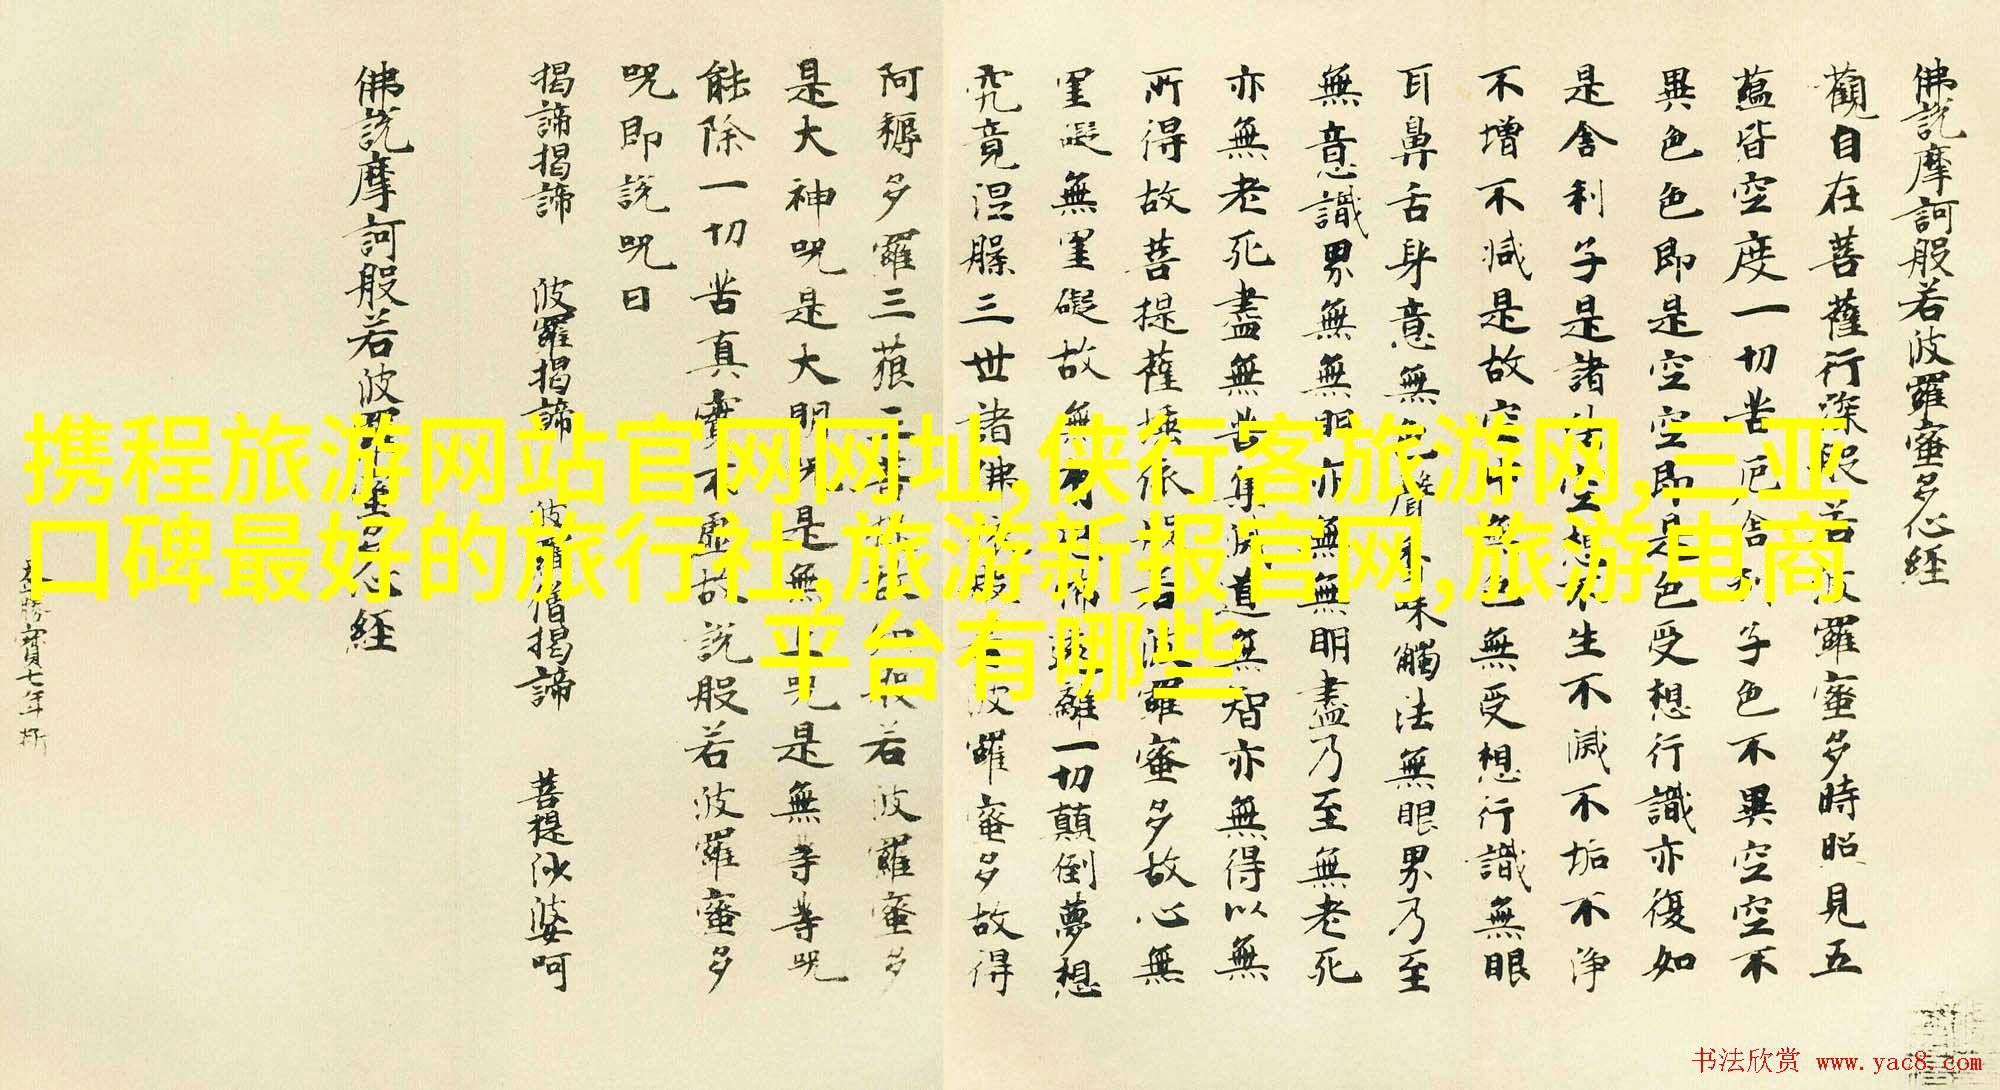 携程旅游网站官网网址,侠行客旅游网,三亚
口碑最好的旅行社,旅游新报官网,旅游电商
平台有哪些
佛說摩訶般若波羅蜜多心經
觀自在菩薩行深般若波羅蜜多時照見五
蘊皆空度一切苦厄舍利子色不異空空不
異色色即是空空即是色受想行識亦復如
是舍利子是諸法空想不生不滅不垢不淨
不增不減是故空中無色無受想行識無眼
耳鼻舌身意無色聲香味觸法無眼界乃至
無意識界無無明亦無無明盡乃至無老死
亦無老死盡無苦集滅道無智亦無得以無
所得故菩提薩埵依般若波羅蜜多故心無
罣礙無罣礙故無有恐怖遠離一切顛倒夢想
究竟涅槃三世諸佛依般若波羅蜜多故得
阿耨多羅三藐三菩提故知般若波羅蜜多
是大神呪是大明呪是無上呪是無等等呪
能除一切苦真實不虛故說般若波羅蜜多
呪即說呪曰
揭諦揭諦 波羅揭諦 波羅僧揭諦 菩提沙婆呵
佛說摩訶般若波羅蜜多心經
勝寶七年
书法欣赏 www.yac8.com